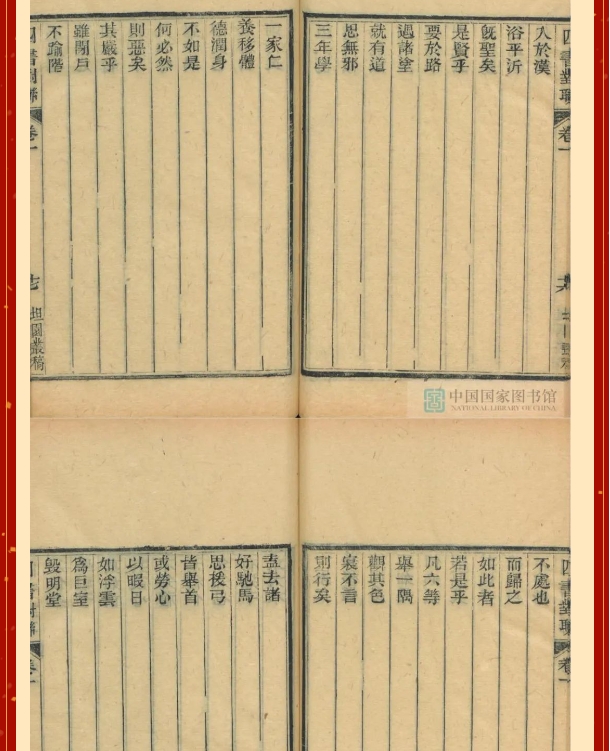 四書對聯 卷一
入於漢
浴乎沂
既聖矣
是賢乎
要於路
遇諸塗
就有道
思無邪
三年學
一家仁
養移體
德潤身
不如是
何必然
則惡矣
其嚴乎
雖閉戶
不踰階
四書對聯 卷一 坦園叢稿
中国国家图书馆
NATIONAL LIBRARY OF CHINA
四書對聯 卷一
不處也
而歸之
如此者
若是乎
凡六等
舉一隅
觀其色
寢不言
則行矣
盍去諸
好馳馬
思援弓
皆舉首
或勞心
以暇日
如浮雲
爲巨室
毀明堂
四書對聯 卷一